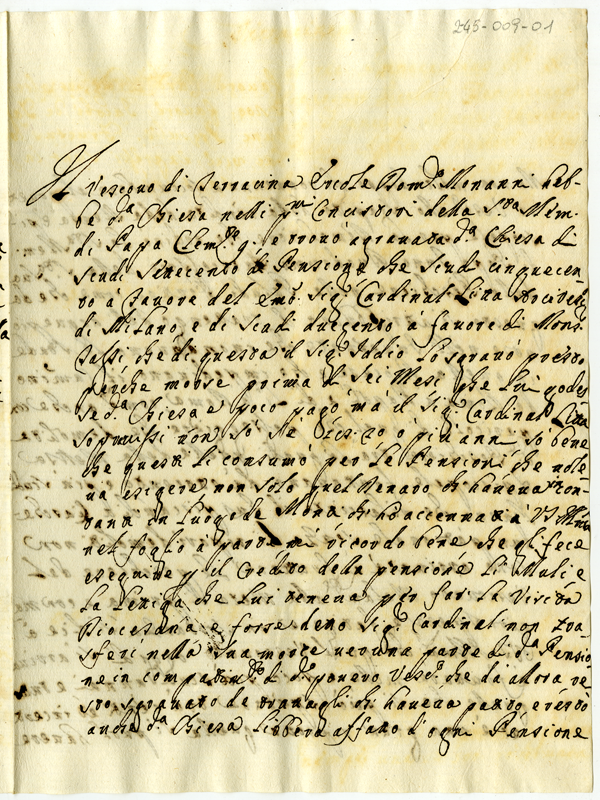 245-009-01
Il Vescovo di Terracina Ercole Dom.º Monanni heb-
be d.ª Chiesa nelli p.mi Concistori della S.ta Mem.
di Papa Clem.te 9. e trovò agravata d.ª Chiesa di
scudi settecento di Pensione che scudi cinquecen
to a favore del Em.º Sig.r Cardinal Litta Arcivesc.
di Milano, e di scudi duegento à favore di Mons.
Tassi che di questa il sig.r Iddio lo sgravò presto
perche morse prima di sei Mesi che lui godes
se d.ª Chiesa e poco pagò mà il Sig.r Cardinal Litta
sopravisse non sò se dieci o più anni, so bene
che questi li consumò per le Pensioni che vole
va esigere non solo quel denaro ch'haveva con
tanti in Luoghi de Monti ch'ho accennati à VS
nel foglio à parte mi ricordo bene che gli fece
eseguire p il Credito della pensione li Muli, e
la Letiga che lui teneva per far la Visita
Diocesana e forse detto Sig.r Cardinal non tra
sferì nella sua morte veruna parte di d.ª Pensio
ne in compatim.to di d.º povero Vesc.º che da allora re
stò sgravato de travagli ch'haveva patito e restò
anche d.ª Chiesa libbera affatto d'ogni Pensione